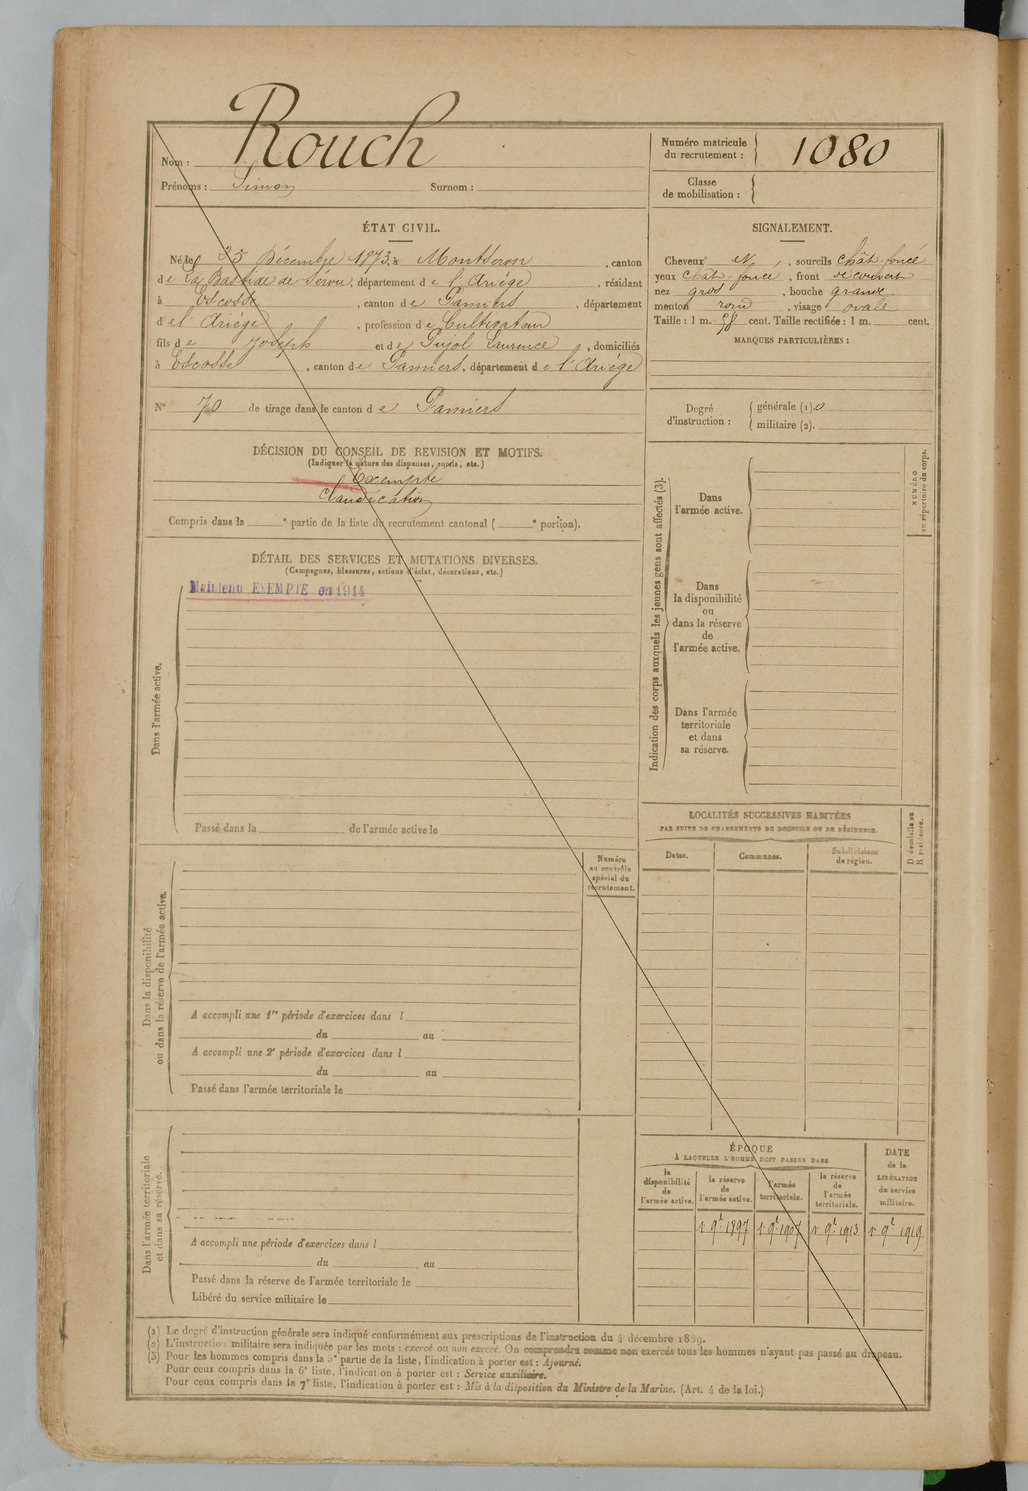 Nom : Rouch
Prénoms : Simon Surnom :
Numéro matricule du recrutement : 1080
Classe de mobilisation :
ÉTAT CIVIL.
Né le 25 Décembre 1873, à Montseron, canton
de La Bastide de Sérou, département de l'Ariège, résidant
à Escosse, canton de Pamiers, département
de l'Ariège, profession de Cultivateur
fils de Joseph et de Pujol Laurence, domiciliés
à Escosse, canton de Pamiers, département de l'Ariège
N° 70 de tirage dans le canton de Pamiers
SIGNALEMENT.
Cheveux et, sourcils chât-foncé
yeux chât-foncé, front découvert
nez gros, bouche grande
menton rond, visage ovale
Taille : 1 m. 58 cent. Taille rectifiée : 1 m. cent.
MARQUES PARTICULIÈRES :
Degré d'instruction : générale (1). 0
militaire (2).
DÉCISION DU CONSEIL DE REVISION ET MOTIFS.
(Indiquer la nature des dispenses, sursis, etc.)
Exempté
Claudication
Compris dans la e partie de la liste du recrutement cantonal ( e portion).
DÉTAIL DES SERVICES ET MUTATIONS DIVERSES.
(Campagnes, blessures, actions d'éclat, décorations, etc.)
Maintenu EXEMPTÉ en 1914
Dans l'armée active.
Passé dans la de l'armée active le
Indication des corps auxquels les jeunes gens sont affectés (3).
Dans l'armée active.
Dans la disponibilité ou dans la réserve de l'armée active.
Dans l'armée territoriale et dans sa réserve.
NUMÉRO au répertoire du corps.
LOCALITÉS SUCCESSIVES HABITÉES
PAR SUITE DE CHANGEMENTS DE DOMICILE OU DE RÉSIDENCE.
Dates. Communes. Subdivisions de région.
D domicile ou R résidence.
Dans la disponibilité ou dans la réserve de l'armée active.
Numéro au contrôle spécial du recrutement.
A accompli une 1re période d'exercices dans l
du au
A accompli une 2e période d'exercices dans l
du au
Passé dans l'armée territoriale le
Dans l'armée territoriale et dans sa réserve.
A accompli une période d'exercices dans l
du au
Passé dans la réserve de l'armée territoriale le
Libéré du service militaire le
ÉPOQUE
À LAQUELLE L'HOMME DOIT PASSER DANS
la disponibilité de l'armée active.
la réserve de l'armée active.
l'armée territoriale.
la réserve de l'armée territoriale.
DATE de la LIBÉRATION du service militaire.
1er 9bre 1897 1er 9bre 1907 1er 9bre 1913 1er 9bre 1919
(1) Le degré d'instruction générale sera indiqué conformément aux prescriptions de l'instruction du 4 décembre 1889.
(2) L'instruction militaire sera indiquée par les mots : exercé ou non exercé. On comprendra comme non exercés tous les hommes n'ayant pas passé au drapeau.
(3) Pour les hommes compris dans la 5e partie de la liste, l'indication à porter est : Ajourné.
Pour ceux compris dans la 6e liste, l'indication à porter est : Service auxiliaire.
Pour ceux compris dans la 7e liste, l'indication à porter est : Mis à la disposition du Ministre de la Marine. (Art. 4 de la loi.)